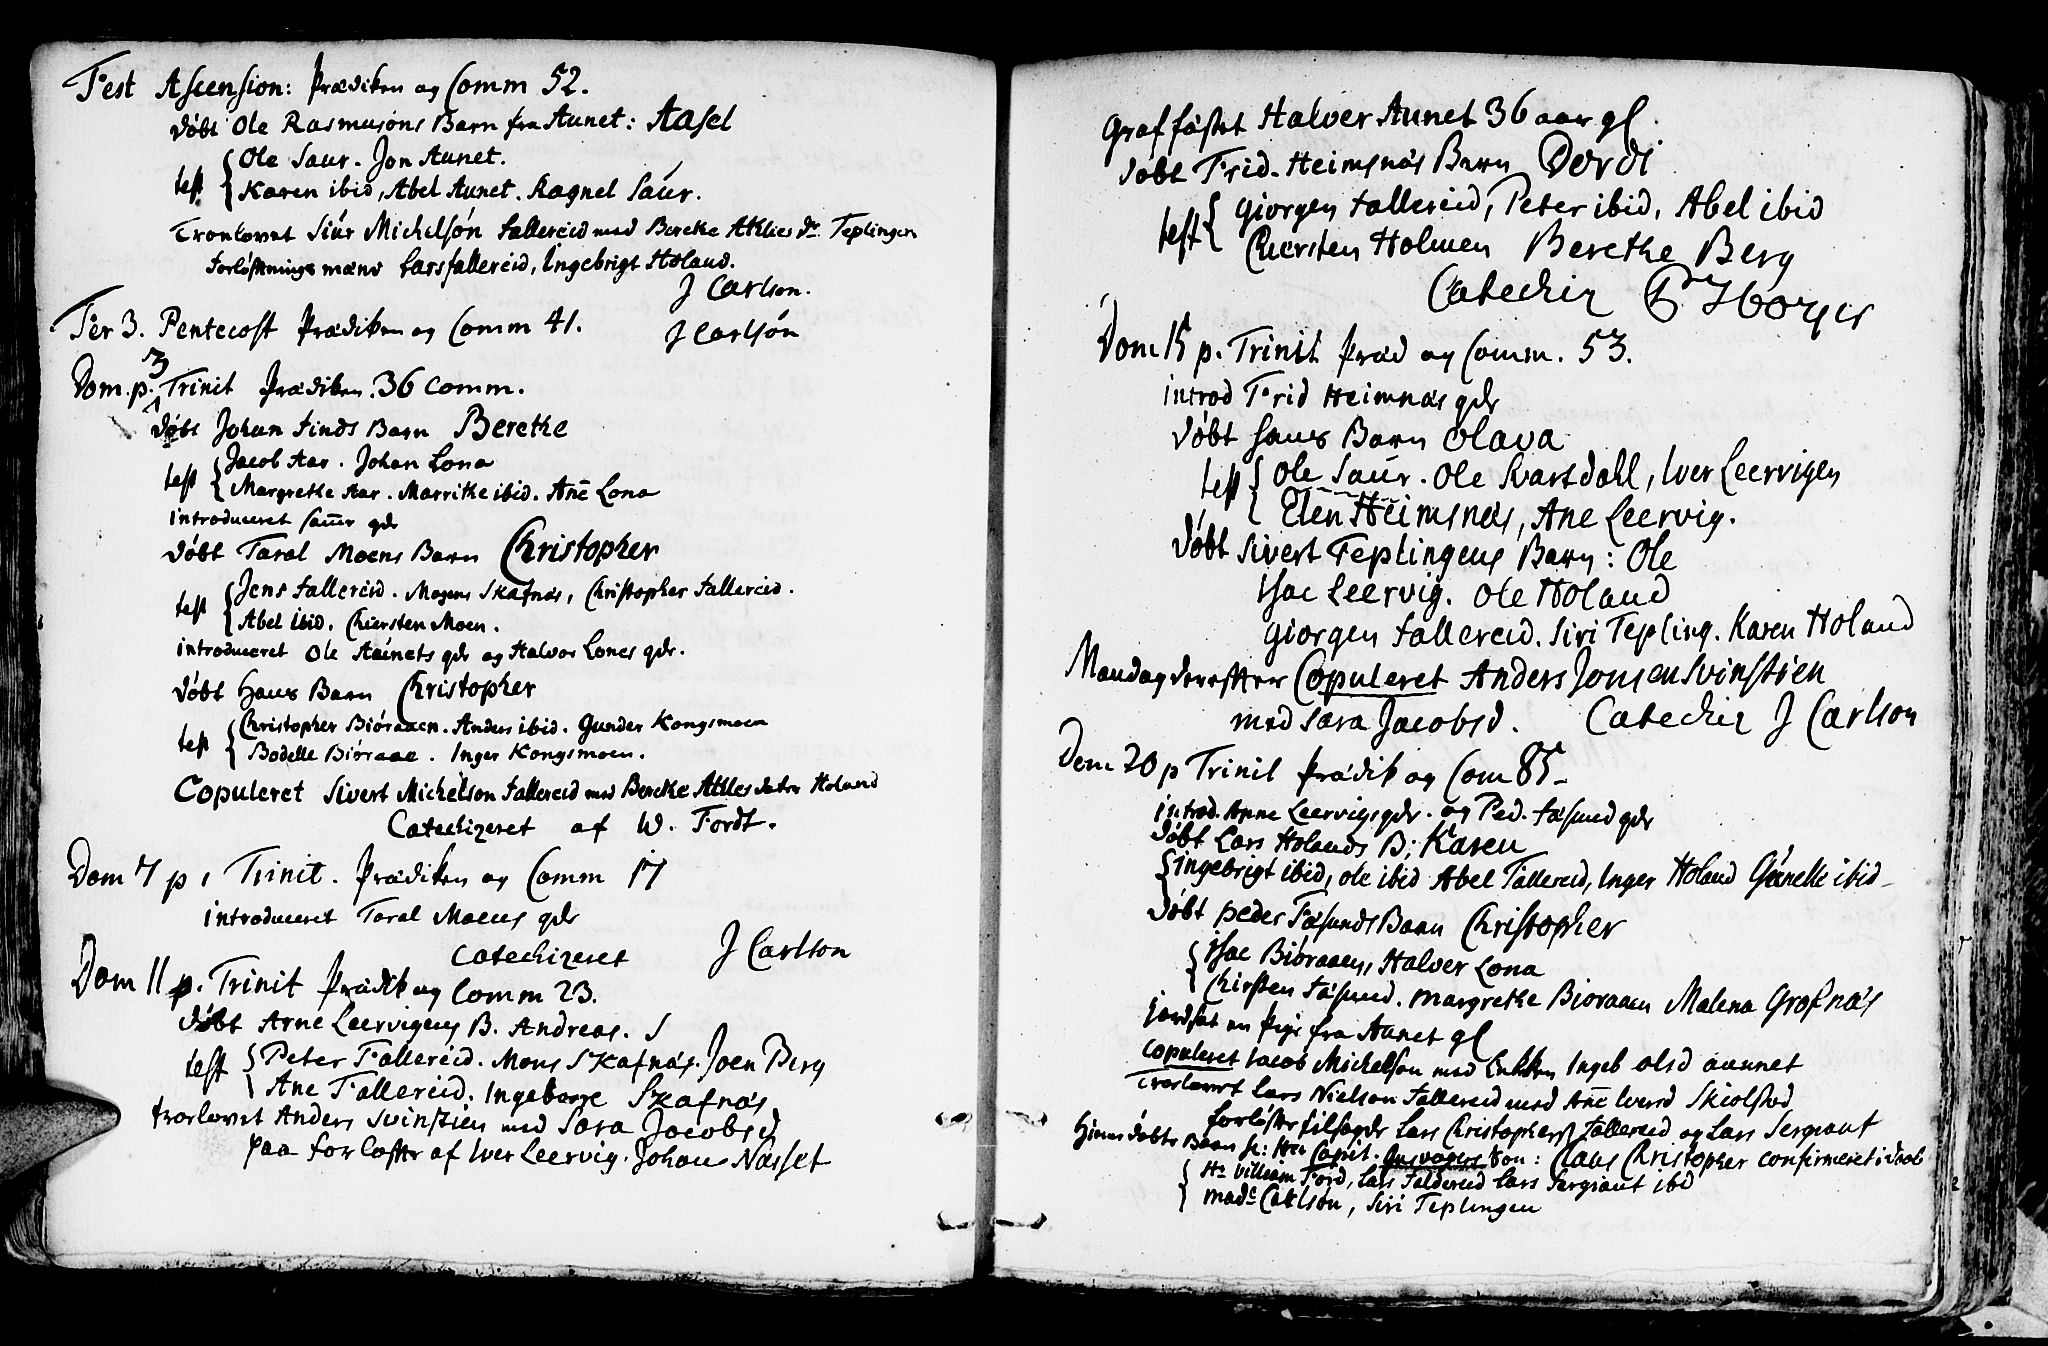 Fest Ascension: Prædiken og Comm 52.
døbt Ole Rasmusøns Barn fra Aunet: Aasel
test Ole Saur. Jon Aunet.
Karen ibid, Abel Aunet. Ragnel Saur.
Trolovet Siur Michelsøn Fallereid med Berethe Atkles dr Teplingen
Forløftnings mænd Lars fallereid, Ingebrigt Holand.
J Carlson.
Fer 3. Pentecost Prædiken og Comm 41. J Carlsøn
Dom. p. 3 Trinit Prædiken. 36 Comm.
døbt Johan Finds Barn Berethe
test Jacob Aar. Johan Lona
Margrethe Aar. Marrithe ibid. Ane Lona
introduceret Saur qdr
døbt Taral Moens Barn Christopher
test Jens fallereid. Mogens Skafnæs, Christopher Fallereid.
Abel ibid. Chiersten Moen.
introduceret Ole Aunets qdr og Halvor Lones qdr.
døbt Hans Barn Christopher
test Christopher Biøraaen. Anders ibid. Gunder Kongsmoen
Bodelle Biøraae. Inger Kongsmoen.
Copuleret Sivert Michelson Fallereid med Berethe Atkles dater Holand
Catechizeret af W. Fordt.
Dom 7 p, Trinit. Prædiken og Comm 17
introduceret Taral Moens qdr
Catechizeret J Carlson
Dom 11 p. Trinit Prædik og Comm 23.
døbt Arne Leervigens B. Andreas.
test Peter Fallereid. Mons Skafnæs. Joen Berg
Ane Fallereid. Ingeborre Skafnæs
trorlovet Anders Svinstien med Sara Jacobsd
paa forløfte af Iver Leervig. Johan Næsset
Graf fæstet Halver Aunet 36 aar gl.
døbt Frid. Heimsnæs Barn Dordi
test Giorgen Fallereid, Peter ibid, Abel ibid
Chiersten Holmen Berethe Berg
Catechiz P Høyer
Dom 15 p. Trinit Præd og Comm. 53.
introd Frid Heimnæs qdr
døbt Hans Barn Olava
test Ole Saur. Ole Svartdahl, Iver Leervigen
Elen Heimsnæs, Ane Leervig.
døbt Sivert Teplingens Barn: Ole
Isac Leervig. Ole Holand
Giorgen Fallereid. Siri Tepling. Karen Holand
Mandag derefter Copuleret Anders Jonsen Svinstien
med Sara Jacobsd. Catechiz J Carlson
Dom 20 p Trinit Prædik og Com 85
introd. Arne Leervigs qdr. og Ped. Fæsund qdr
døbt Lars Holands B: Karen
ingebrigt ibid, ole ibid Abel Fallereid, Inger Holand Gunelle ibid
døbt Peder Fæsunds Barn Christopher
Isac Biøraaen, Halver Lona
Chirsten Fæsund. Margrethe Biøraaen Malena Grofnæs
jordsat en Pige fra Aunet gl
copuleret Jacob Michelson med Enkken Ingeb olsd aunnet
Trorlovet Lars Nielson Fallereid med Ane Iversd Skiolstad
forløfte Lars Christophers Fallereid og Lars Sergiant
Hiemedøbte Barn Hr Capit. Son: Claus Christopher confirmeret i daab
Hr Villiam Ford, Lars Faldereid Lars Sergiant ibid
madc Carlsøn, Siri Teplingen